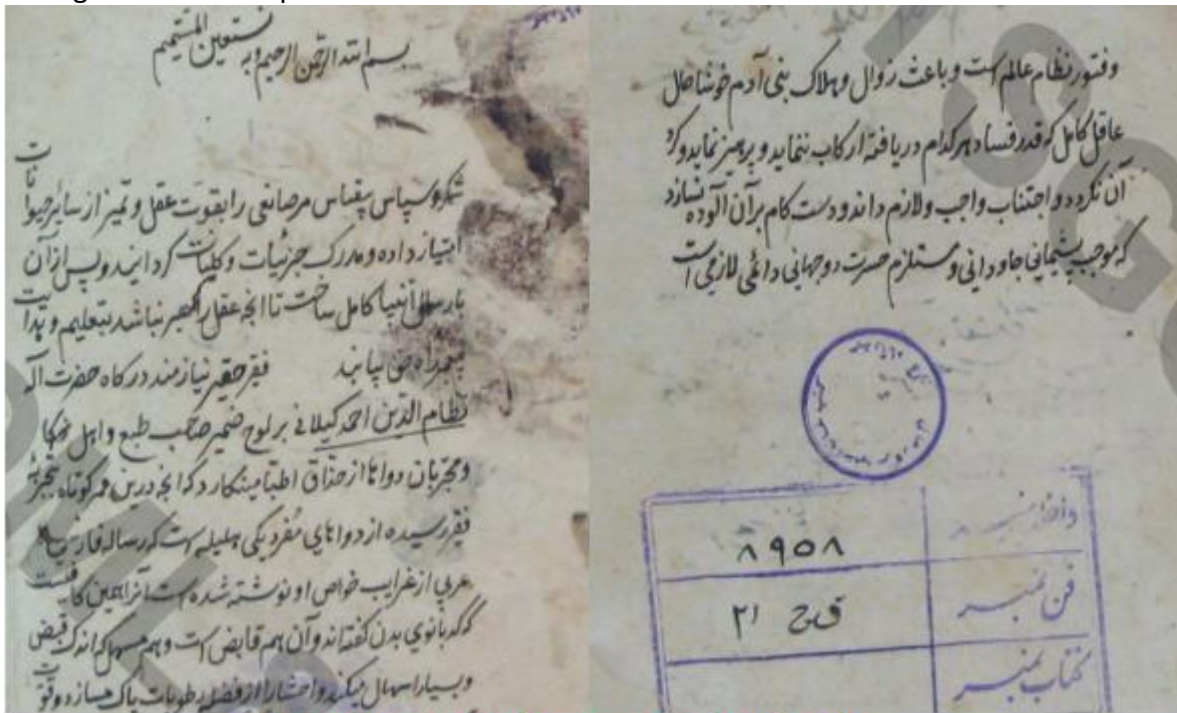 بسم الله الرحمن الرحیم وبه نستعین
شکر و سپاس بیقیاس مر صانعی را بقوت عقل و تمیز از سایر حیوانات
امتیاز داده و مدرک جزئیات و کلیات کردانید و پس از آن
بارسال انبیا کامل ساخت تا انچه عقل را نباشد بتعلیم و هدایت
راه حق بیابند فقیر حقیر نیازمند درکاه حضرت اله
نظام الدین احمد کیلانی بر لوح ضمیر صاحب طبع و اهل ذکا
و مجربان دواها از حذاق اطبا مینکارد که انچه درین عمر کوتاه بتجربه
فقیر رسیده از دواهای مفرد یکی هلیله است که رساله فارسی
عربی از غرایب خواص او نوشته شده است آنرا همین کافیست
که کدبانوی بدن کفته‌اند و آن هم قابض است و هم مسهل که اندک قبض
و بسیار اسهال میکند و احشا را از فضول رطوبات پاک میسازد و قوت
وفتور نظام عالم است و باعث زوال و هلاک بنی آدم خوشا حال
عاقل کامل که قدر فساد هرکدام دریافته ارکاب ننماید و پرهیز نماید و کرد
آن نکردد و اجتناب واجب و لازم داند و دست کام بر آن آلوده نسازد
که موجب پشیمانی جاودانی و مستلزم حسرت دوجهانی دائمی لازمی است
داخله نمبر
۸۹۵۸
فن نمبر
ق ج ۲۱
کتاب نمبر